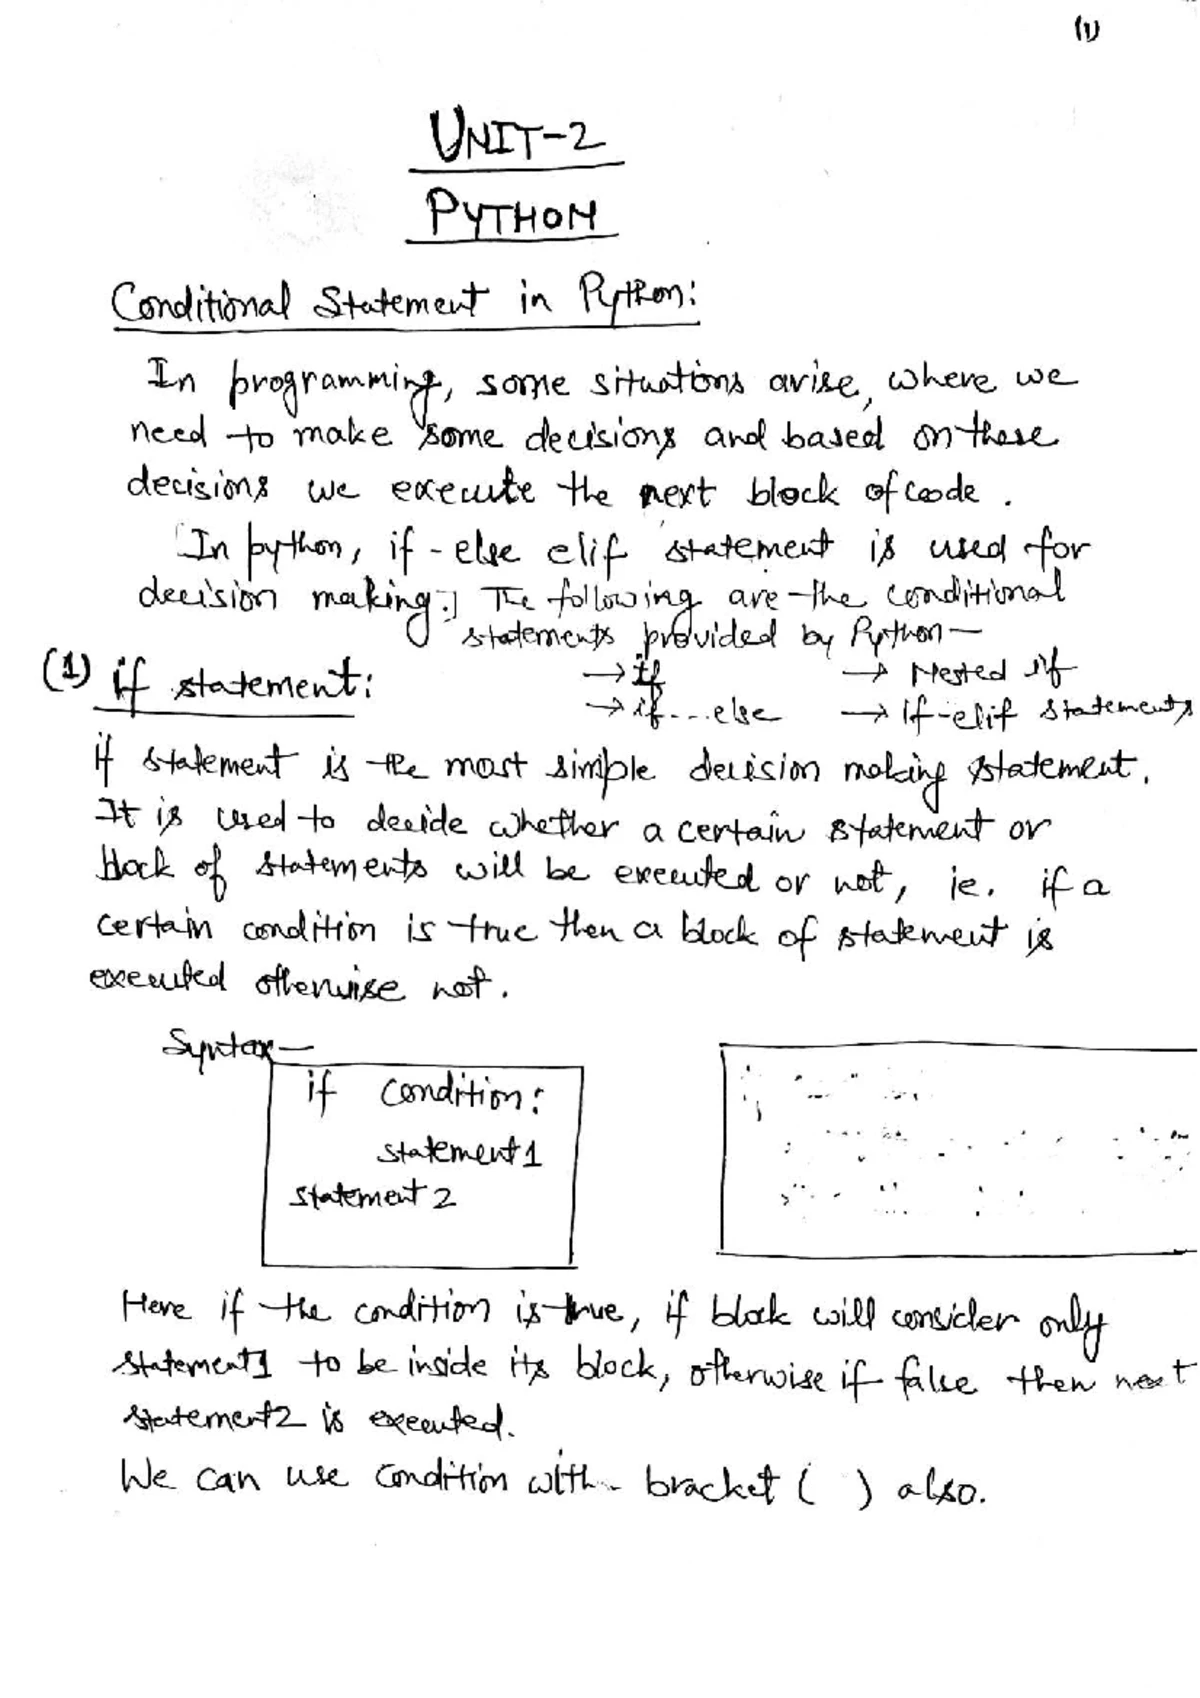 (1)
UNIT-2
PYTHON
Conditional Statement in Python:
In programming, some situations arise, where we
need to make some decisions and based on these
decisions we execute the next block of code.
In python, if-else elif statement is used for
decision making.] The following are the conditional
statements provided by Python—
→ if → Nested if
→ if...else → if-elif statements
(1) if statement:
if statement is the most simple decision making statement.
It is used to decide whether a certain statement or
block of statements will be executed or not, ie. if a
certain condition is true then a block of statement is
executed otherwise not.
Syntax—
if condition:
statement1
statement2
Here if the condition is true, if block will consider only
statement1 to be inside its block, otherwise if false then next
statement2 is executed.
We can use condition with bracket ( ) also.